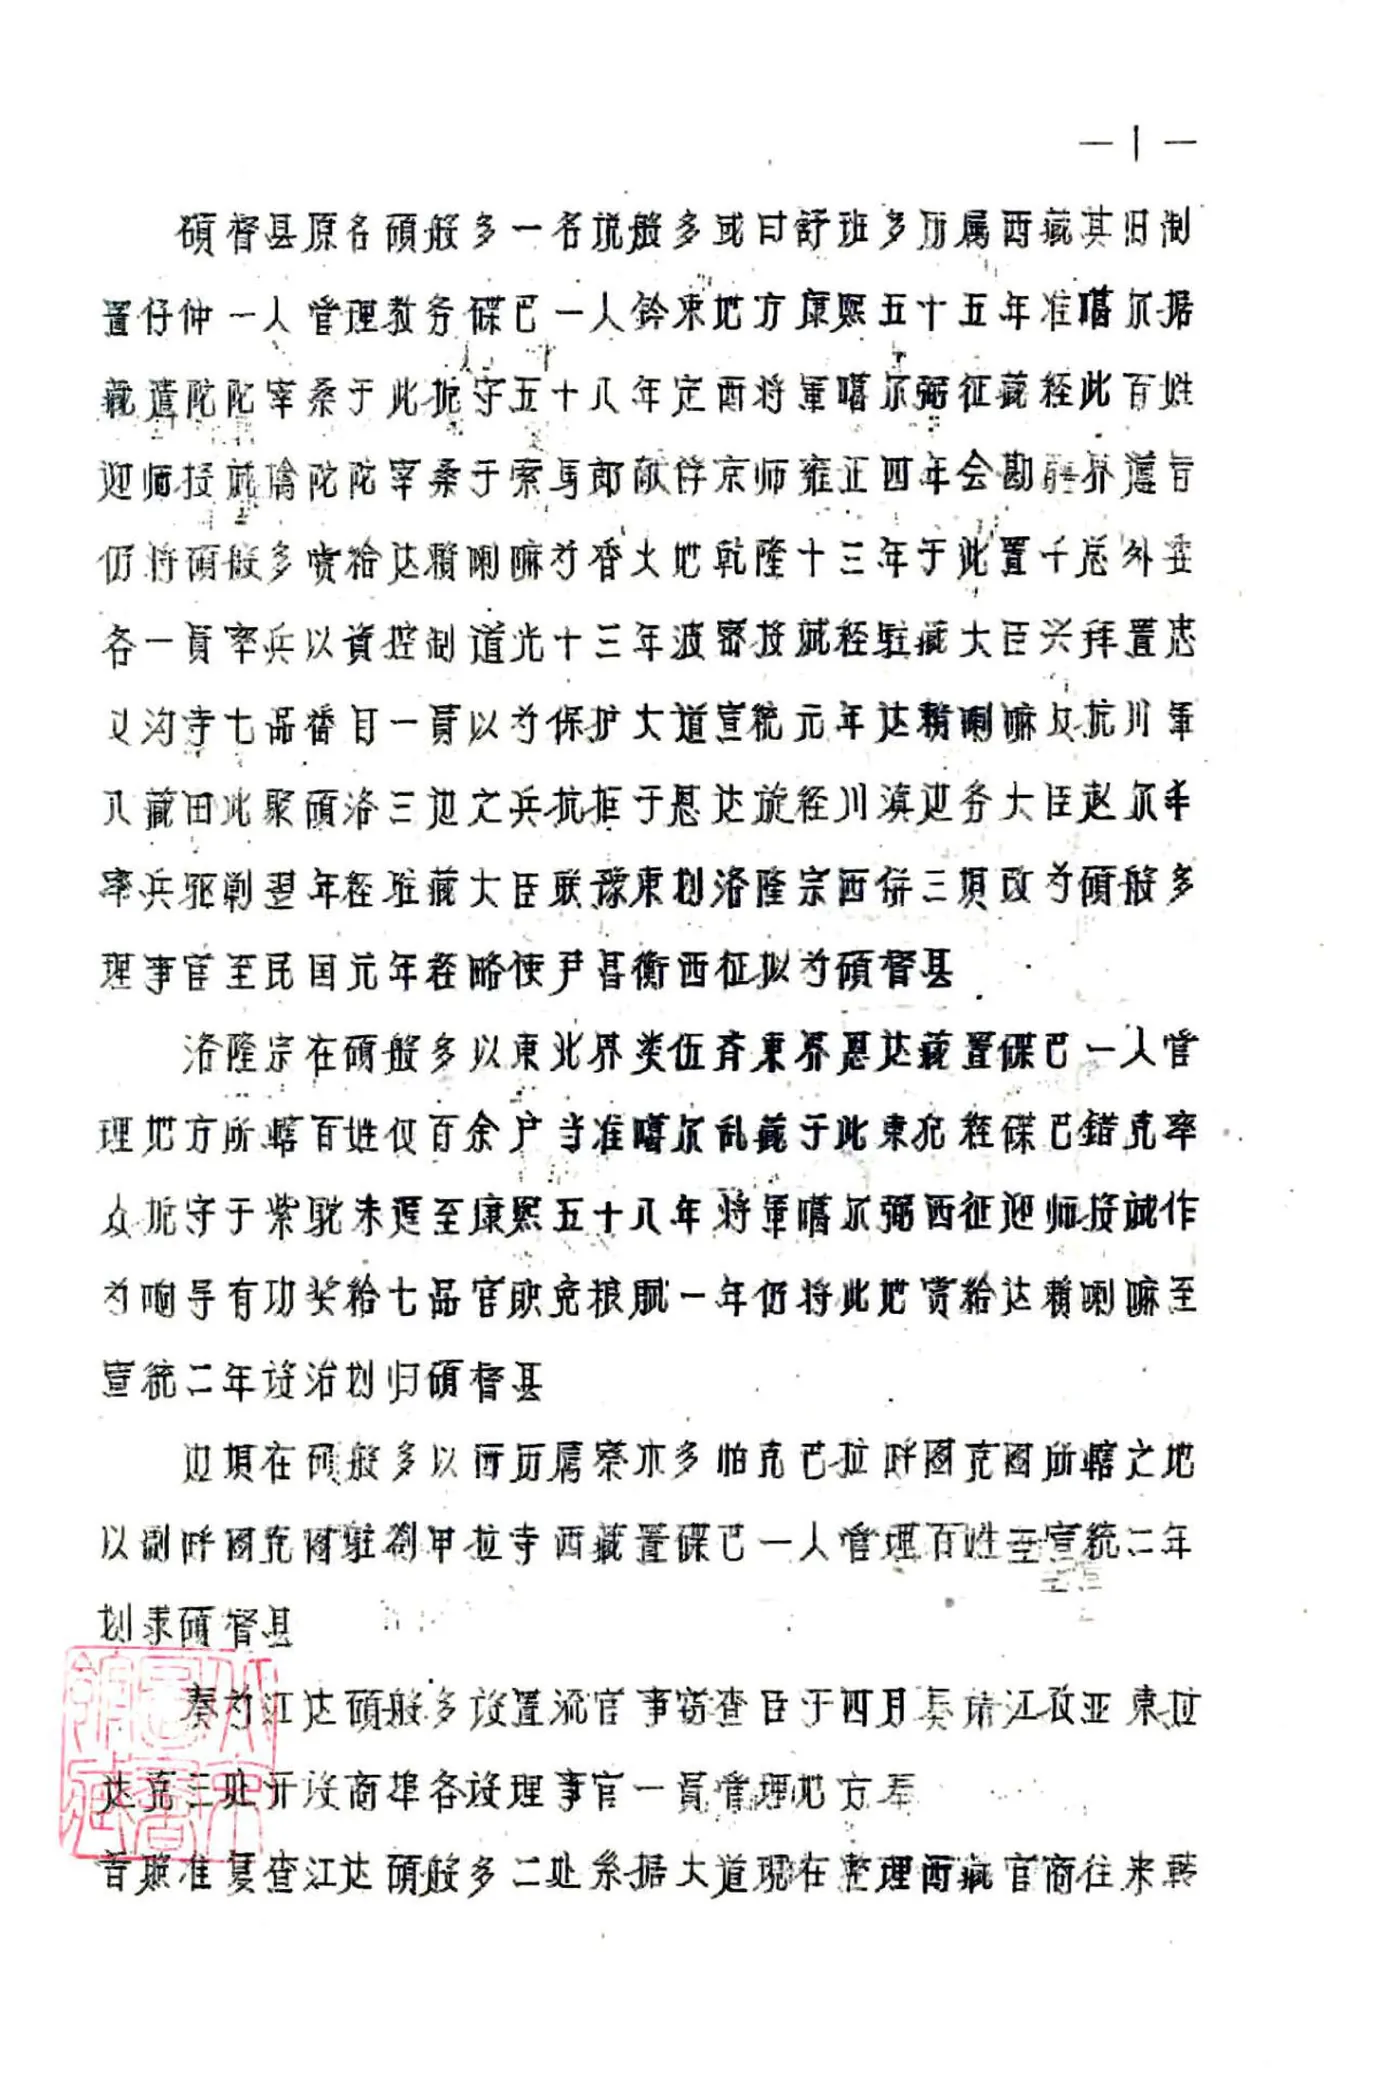 —1—
碩督县原名碩般多一名说般多或曰舒班多历属西藏其旧制
置仔仲一人管理教务碟巴一人鈐束地方康熙五十五年准噶尔据
藏遣陀陀宰桑于此扼守五十八年定西将軍噶尔弼征藏经此百姓
迎师投誠擒陀陀宰桑于索馬郎献俘京师雍正四年会勘疆界遵旨
仍将碩般多赏给达賴喇嘛为香火地乾隆十三年于此置千总外委
各一員率兵以資控制道光十三年波密投誠经駐藏大臣兴拜置志
义沟寺七品番目一員以为保护大道宣统元年达賴喇嘛反抗川軍
入藏由此聚碩洛三边之兵抗拒于恩达旋经川滇边务大臣赵尔丰
率兵驱剿翌年经駐藏大臣联豫東划洛隆宗西併三垻改为碩般多
理事官至民国元年经略使尹昌衡西征拟为碩督县
洛隆宗在碩般多以東北界类伍齐東界恩达藏置碟巴一人管
理地方所轄百姓仅百余户当准噶尔乱藏于此東充经碟巴錯克率
众扼守于紫駝未逞至康熙五十八年将軍噶尔弼西征迎师投誠作
为响导有功奖给七品官职免粮賦一年仍将此地赏给达賴喇嘛至
宣统二年设治划归碩督县
边垻在碩般多以西历属察木多帕克巴拉呼图克图所轄之地
以副呼图克图駐劄甲拉寺西藏置碟巴一人管理百姓至宣统二年
划隶碩督县
奏为江达碩般多设置流官事窃查臣于四月奏请江孜亚東拉
达克三处开设商埠各设理事官一員管理地方奉
旨照准复查江达碩般多二处系据大道现在整理西藏官商往来转